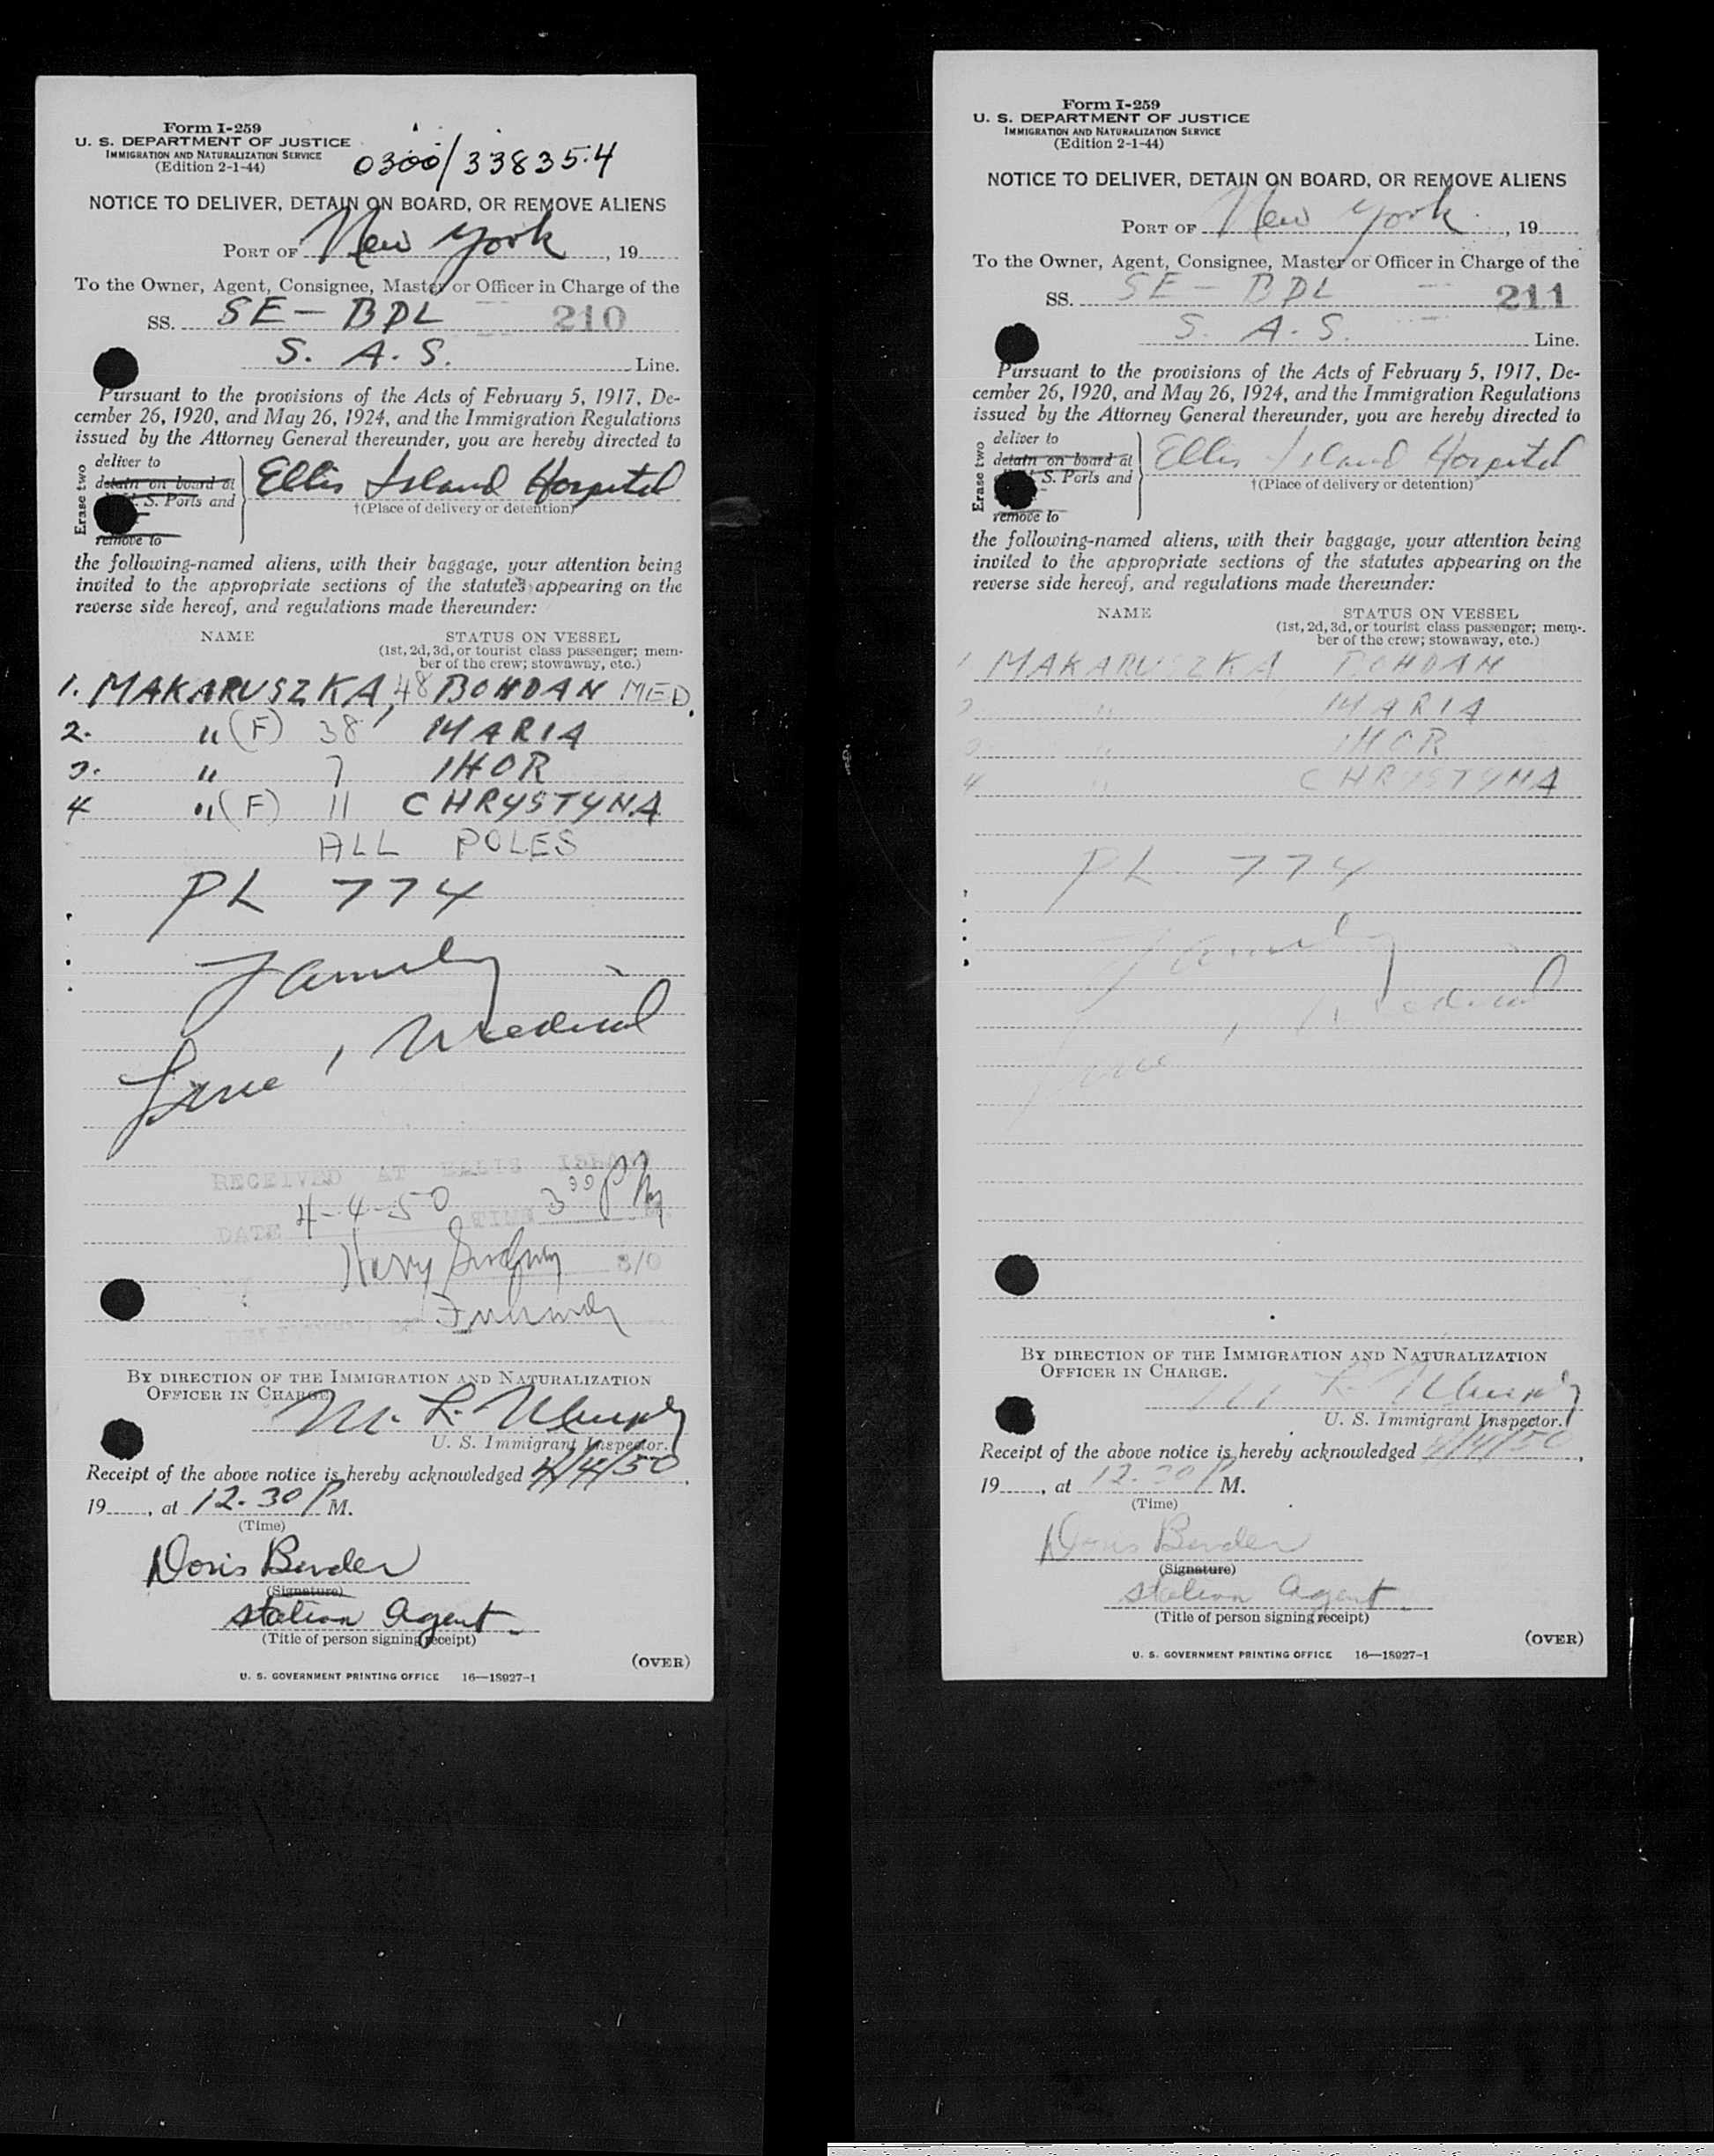 Form I-259
U. S. DEPARTMENT OF JUSTICE
IMMIGRATION AND NATURALIZATION SERVICE
(Edition 2-1-44)
0300/33835.4
NOTICE TO DELIVER, DETAIN ON BOARD, OR REMOVE ALIENS
PORT OF New York, 19
To the Owner, Agent, Consignee, Master or Officer in Charge of the
SS. SE-BDL 210
S. A. S. Line.
Pursuant to the provisions of the Acts of February 5, 1917, De-
cember 26, 1920, and May 26, 1924, and the Immigration Regulations
issued by the Attorney General thereunder, you are hereby directed to
Erase two
deliver to
detain on board at
S. Ports and
remove to
Ellis Island Hospital
†(Place of delivery or detention)
the following-named aliens, with their baggage, your attention being
invited to the appropriate sections of the statutes appearing on the
reverse side hereof, and regulations made thereunder:
NAME STATUS ON VESSEL
(1st, 2d, 3d, or tourist class passenger; mem-
ber of the crew; stowaway, etc.)
1. MAKARUSZKA, 48 BOHDAN MED.
2. " (F) 38 MARIA
3. " 7 IHOR
4 " (F) 11 CHRYSTYNA
ALL POLES
PL 774
Family
, Medical
RECEIVED AT ELLIS ISLAND
DATE 4-4-50 TIME 3 PM
Harry
BY DIRECTION OF THE IMMIGRATION AND NATURALIZATION
OFFICER IN CHARGE.
M. L. Murphy
U. S. Immigrant Inspector.
Receipt of the above notice is hereby acknowledged 4/4/50,
19, at 12.30 P M.
(Time)
Doris Bender
(Signature)
Station Agent.
(Title of person signing receipt)
(OVER)
U. S. GOVERNMENT PRINTING OFFICE 16—18927-1
Form I-259
U. S. DEPARTMENT OF JUSTICE
IMMIGRATION AND NATURALIZATION SERVICE
(Edition 2-1-44)
NOTICE TO DELIVER, DETAIN ON BOARD, OR REMOVE ALIENS
PORT OF New York, 19
To the Owner, Agent, Consignee, Master or Officer in Charge of the
SS. SE-BDL 211
S. A. S. Line.
Pursuant to the provisions of the Acts of February 5, 1917, De-
cember 26, 1920, and May 26, 1924, and the Immigration Regulations
issued by the Attorney General thereunder, you are hereby directed to
Erase two
deliver to
detain on board at
S. Ports and
remove to
Ellis Island Hospital
†(Place of delivery or detention)
the following-named aliens, with their baggage, your attention being
invited to the appropriate sections of the statutes appearing on the
reverse side hereof, and regulations made thereunder:
NAME STATUS ON VESSEL
(1st, 2d, 3d, or tourist class passenger; mem-
ber of the crew; stowaway, etc.)
1 MAKARUSZKA BOHDAN
2 " MARIA
3 " IHOR
4 " CHRYSTYNA
PL 774
Family
, Medical
BY DIRECTION OF THE IMMIGRATION AND NATURALIZATION
OFFICER IN CHARGE.
M. L. Murphy
U. S. Immigrant Inspector.
Receipt of the above notice is hereby acknowledged 4/4/50,
19, at 12.30 P M.
(Time)
Doris Bender
(Signature)
Station Agent.
(Title of person signing receipt)
(OVER)
U. S. GOVERNMENT PRINTING OFFICE 16—18927-1